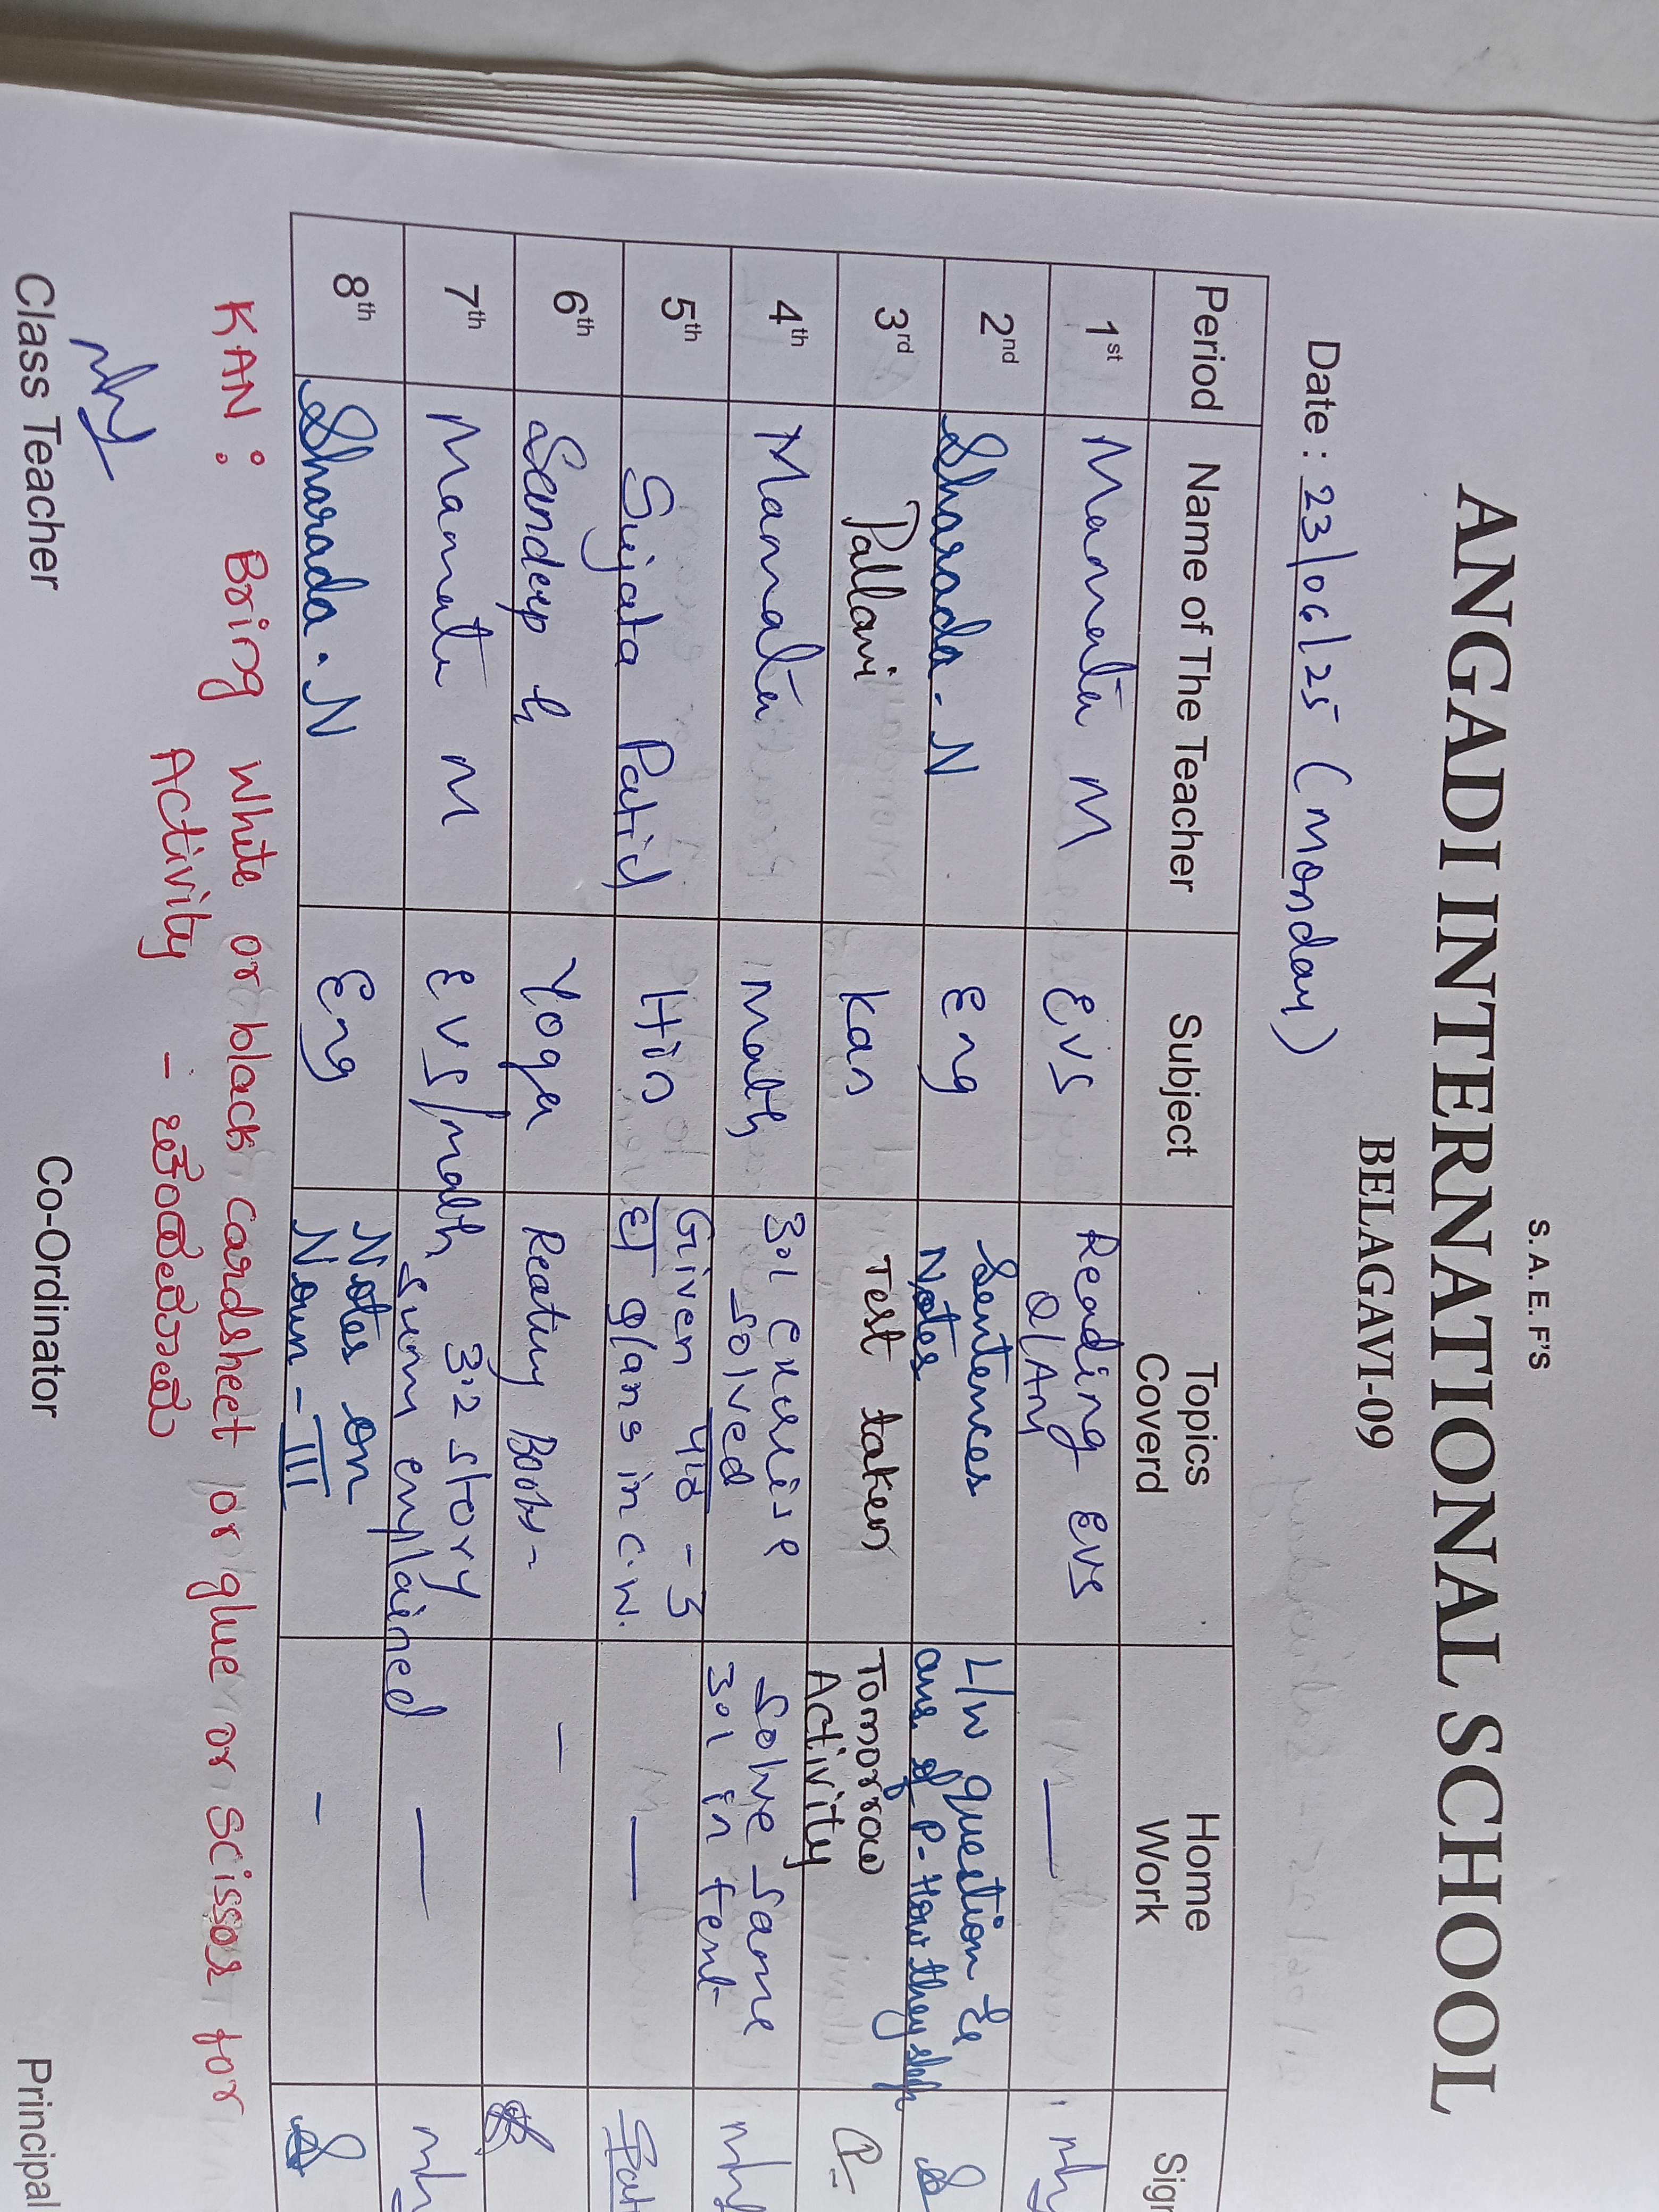 S. A. E. F'S
ANGADI INTERNATIONAL SCHOOL
BELAGAVI-09
Date : 23/06/25 (Monday)
Period Name of The Teacher Subject Topics Coverd Home Work Sign
1st Mamata M EVS Reading EVS Q/Any
2nd Sharada. N Eng Sentences Notes L/w question & ans of P- How they
3rd Pallavi Kan Test taken Tomorrow Activity
4th Mamata Math 3.1 exercise solved Solve same 3.1 in
5th Sujata Patil Hin Given पाठ - 3 g/ans in c.w. —
6th Sandeep Yoga -
7th Mamata M EVS/math 3.2 story sum explained —
8th Sharada. N Eng Notes on Noun - III -
KAN : Bring white or black cardsheet or glue or scissor for
Activity -
Class Teacher Co-Ordinator Principal